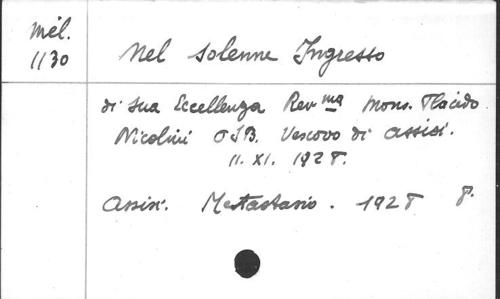 Mél.
1130
Nel solenne Ingresso
di Sua Eccellenza Rev ma Mons. Placido
Nicolini OSB. Vescovo di Assisi.
11. XI. 1928.
Assisi. Metastasio. 1928 8.